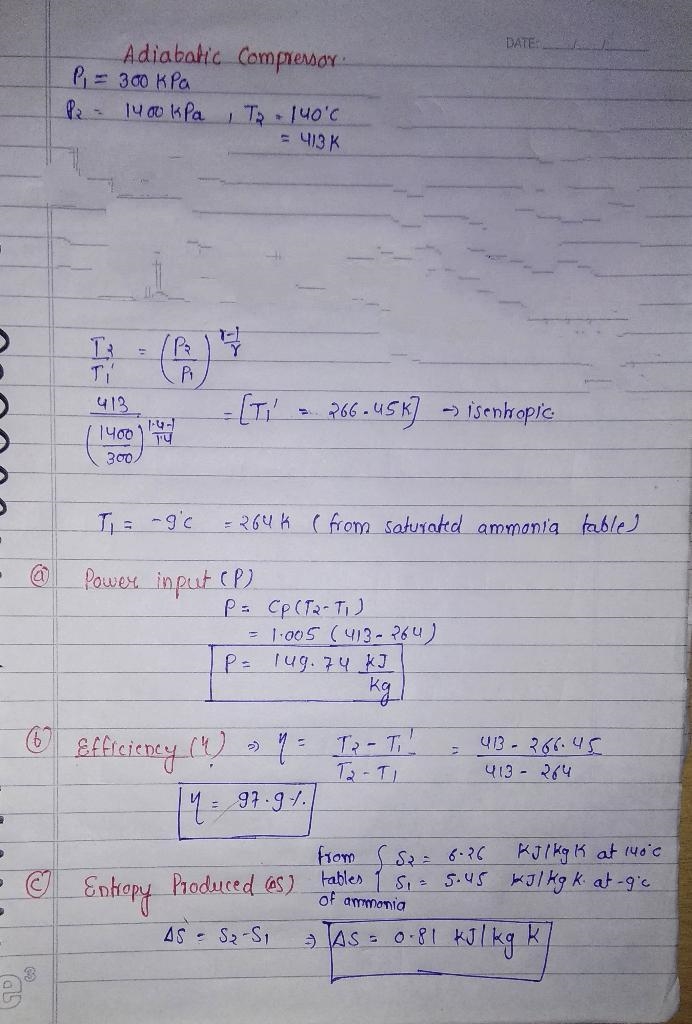 DATE:
Adiabatic Compressor.
P₁ = 300 KPa
P₂ = 1400 KPa , T₂ = 140°C
= 413 K
T₂/T₁' = (P₂/P₁)^((γ-1)/γ)
413/(1400/300)^((1.4-1)/1.4) = [T₁' = 266.45K] → isentropic
T₁ = -9°C = 264 K (from saturated ammonia table)
(a) Power input (P)
P = Cp(T₂-T₁)
= 1.005 (413-264)
P = 149.74 KJ/Kg
(b) Efficiency (η) ⇒ η = (T₂-T₁')/(T₂-T₁) = (413-266.45)/(413-264)
η = 97.9 %.
(c) Entropy Produced (ΔS) from tables of ammonia { S₂ = 6.26 KJ/kg K at 140°C
S₁ = 5.45 KJ/kg K. at -9°C
ΔS = S₂-S₁ ⇒ ΔS = 0.81 KJ/kg K
e³